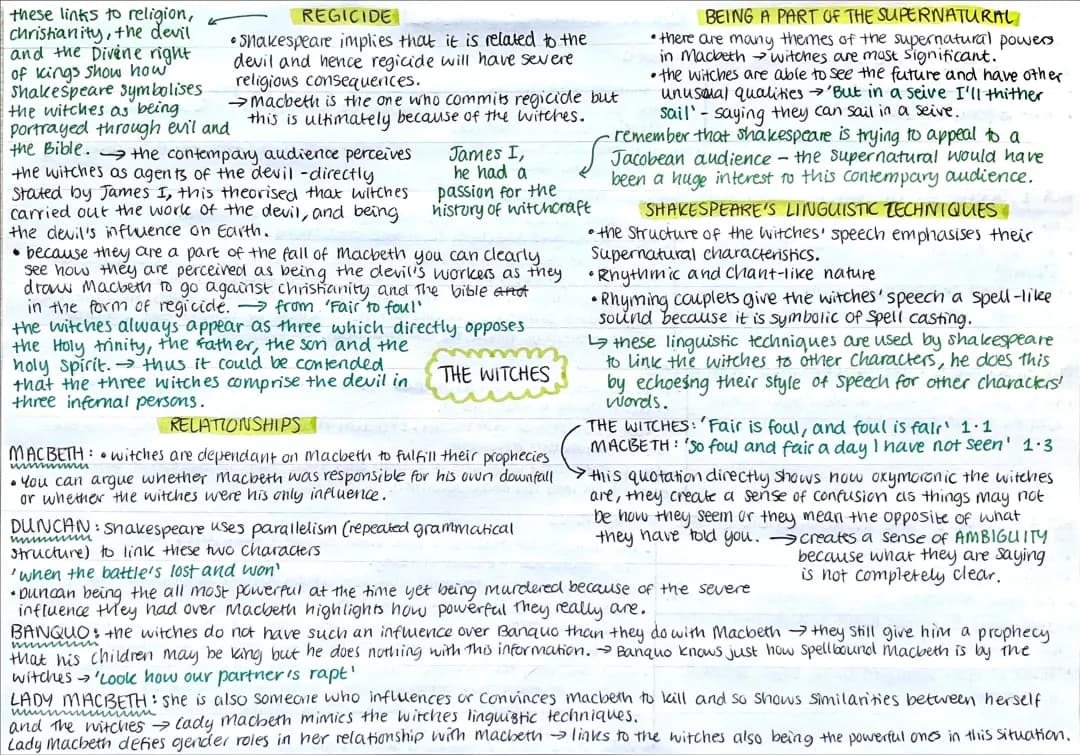 these links to religion,
christianity, the devil
and the Divine right
of kings show how
Shakespeare symbolises
the witches as being
portrayed through evil and
the Bible.
REGICIDE
• Shakespeare implies that it is related to the
devil and hence regicide will have severe
religious consequences.
→ Macbeth is the one who commits regicide but
this is ultimately because of the witches.
→ the contempary audience perceives
the witches as agents of the devil - directly
stated by James I, this theorised that witches
carried out the work of the devil, and being
the devil's influence on Earth.
• because they are a part of the fall of Macbeth you can clearly
see how they are perceived as being the devil's workers as they
draw Macbeth to go against christianity and the bible and
in the form of regicide. → from 'Fair to foul'
the witches always appear as three which directly opposes
the Holy trinity, the father, the son and the
holy spirit. → thus it could be contended
that the three witches comprise the devil in
three infernal persons.
James I,
he had a
passion for the
history of witchcraft
THE WITCHES
BEING A PART OF THE SUPERNATURAL
• there are many themes of the supernatural powers
in Macbeth → witches are most significant.
• the witches are able to see the future and have other
unusual qualities → 'But in a seive I'll thither
sail' - saying they can sail in a seive.
remember that shakespeare is trying to appeal to a
Jacobean audience – the supernatural would have
been a huge interest to this contempary audience.
SHAKESPEARE'S LINGUISTIC TECHNIQUES
• the structure of the witches' speech emphasises their
Supernatural characteristics.
• Rhythmic and chant-like nature
• Rhyming couplets give the witches' speech a spell-like
sound because it is symbolic of spell casting.
↳ these linguistic techniques are used by shakespeare
to link the witches to other characters, he does this
by echoeing their style of speech for other characters'
words.
THE WITCHES: 'Fair is foul, and foul is fair' 1.1
MACBETH: 'So foul and fair a day I have not seen' 1.3
→ this quotation directly shows how oxymoronic the witches
are, they create a sense of confusion as things may not
be how they seem or they mean the opposite of what
they have told you. → creates a sense of AMBIGUITY
because what they are saying
is not completely clear.
RELATIONSHIPS
MACBETH: • witches are dependant on Macbeth to fulfill their prophecies
• You can argue whether Macbeth was responsible for his own downfall
or whether the witches were his only influence.
DUNCAN: Shakespeare uses parallelism (repeated grammatical
structure) to link these two characters
'when the battle's lost and won'
• Duncan being the all most powerful at the time yet being murdered because of the severe
influence they had over Macbeth highlights how powerful they really are.
BANQUO: the witches do not have such an influence over Banquo than they do with Macbeth → they still give him a prophecy
that his children may be king but he does nothing with this information. → Banquo knows just how spellbound Macbeth is by the
witches → 'Look how our partner's rapt'
LADY MACBETH: she is also someone who influences or convinces macbeth to kill and so shows similarities between herself
and the witches → Lady Macbeth mimics the witches linguistic techniques.
Lady Macbeth defies gender roles in her relationship with Macbeth → links to the witches also being the powerful ones in this situation.